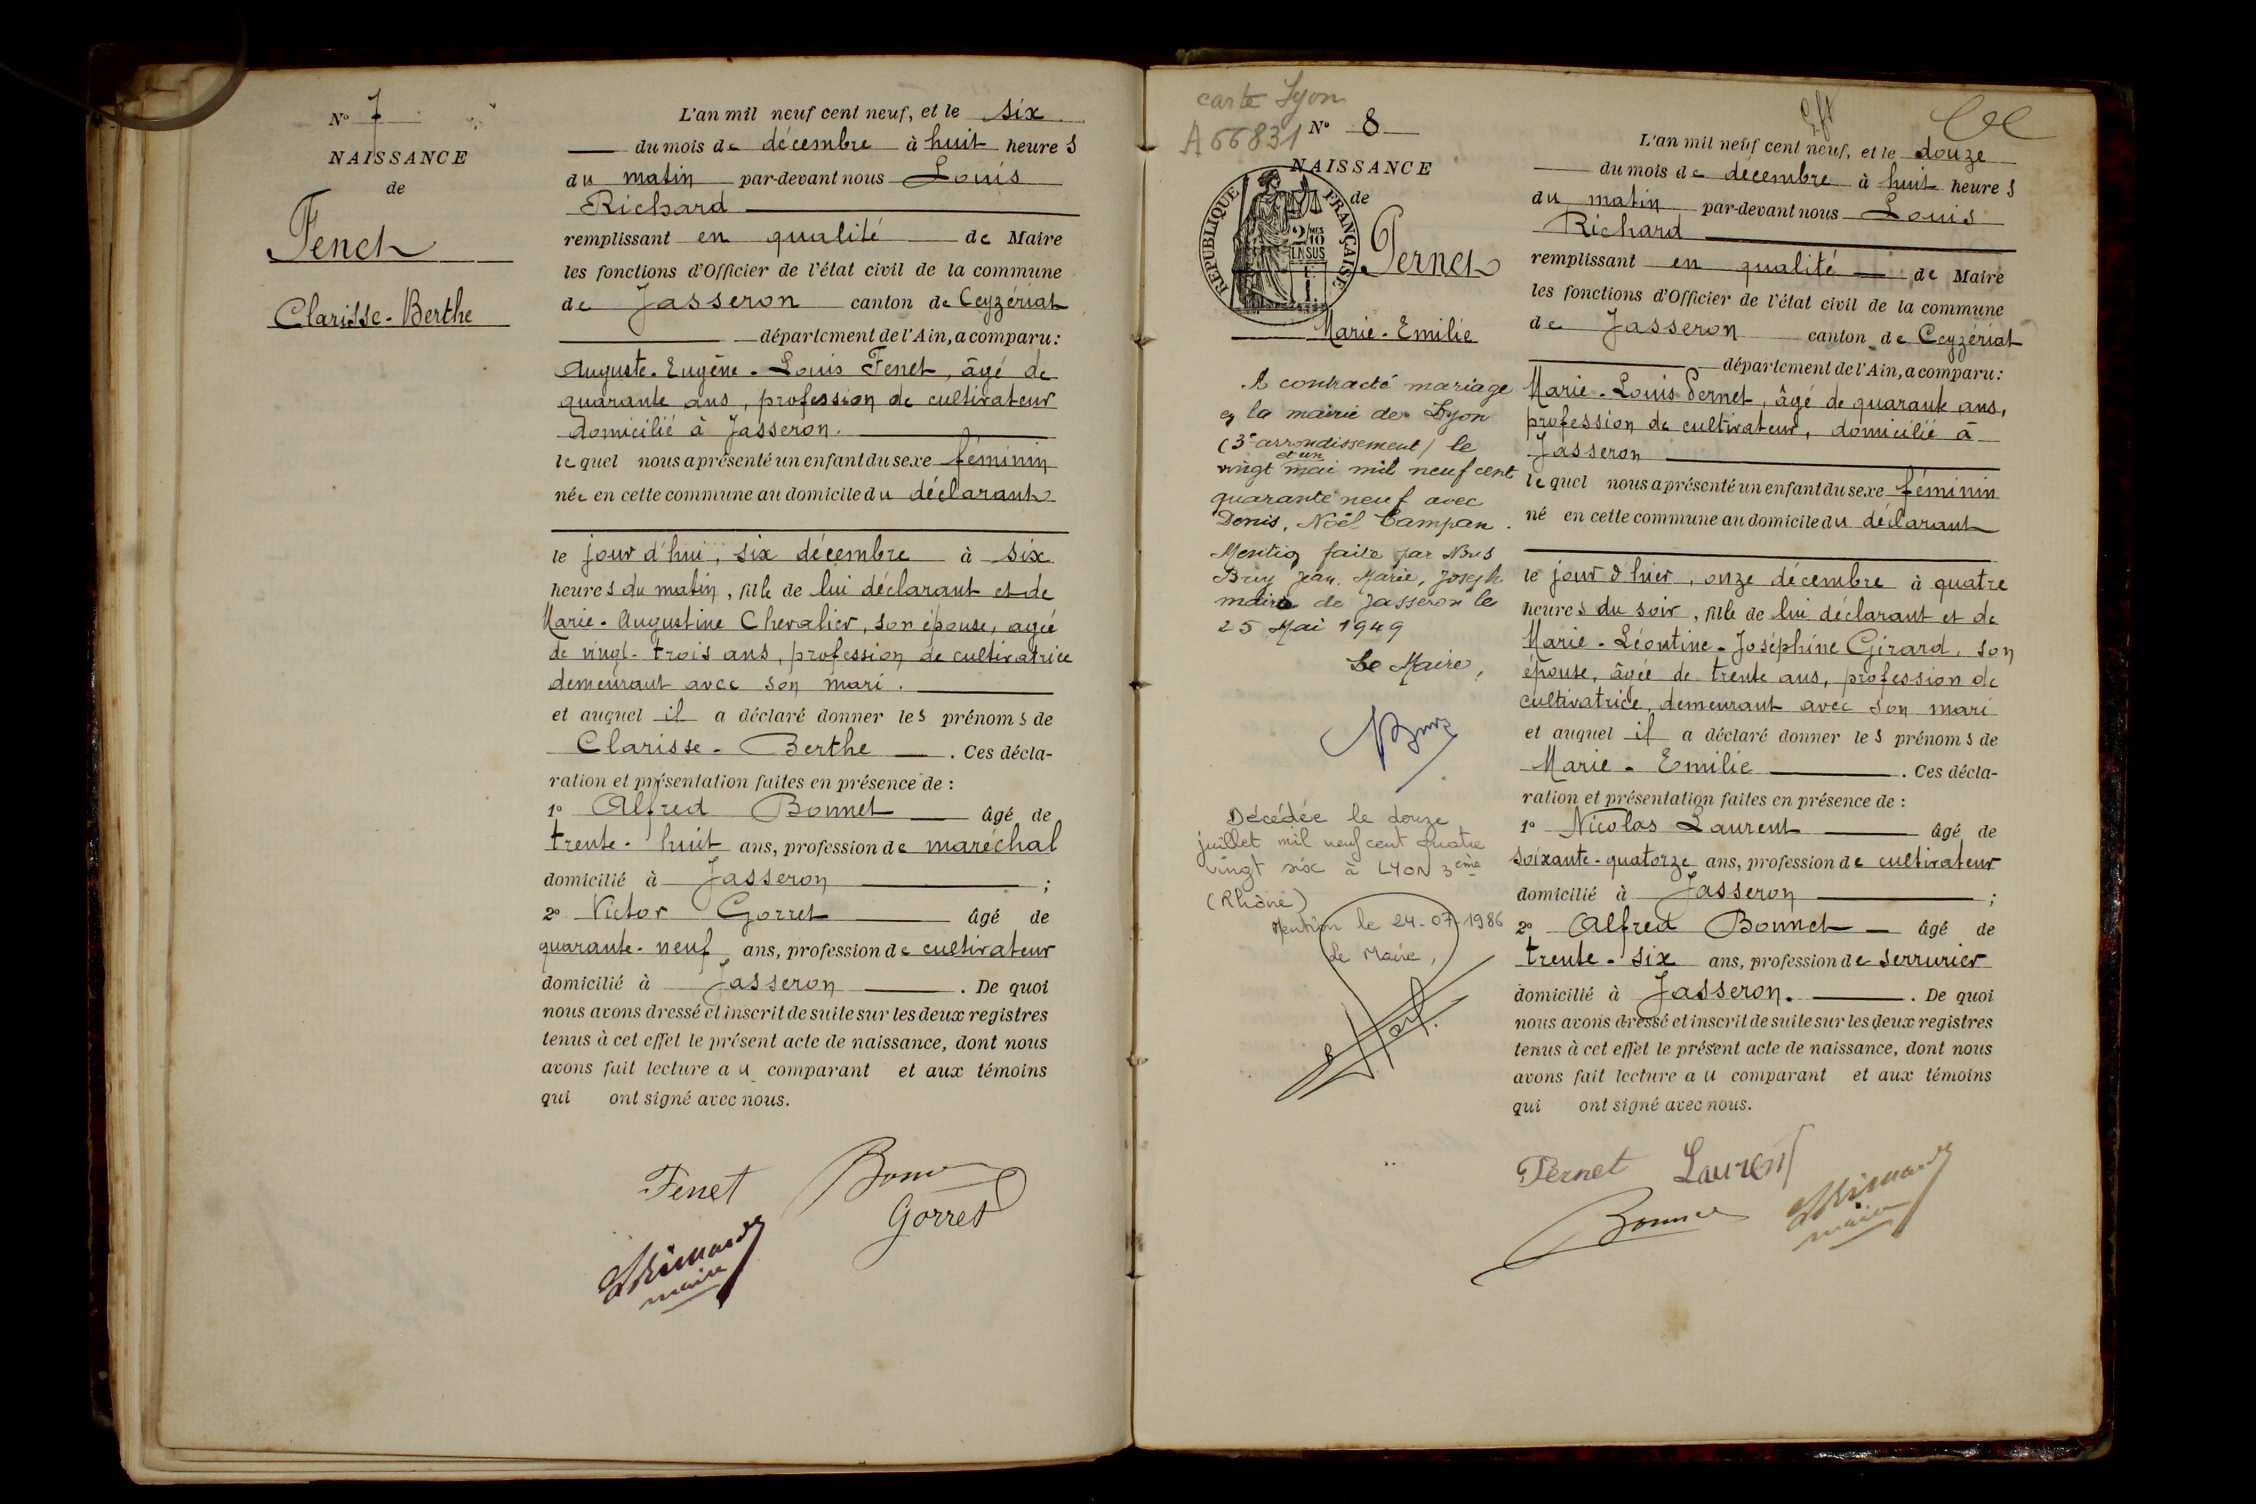 N° 7
NAISSANCE
de
Fenet
Clarisse-Berthe
L'an mil neuf cent neuf, et le six
du mois de décembre à huit heures
du matin par-devant nous Louis
Richard
remplissant en qualité de Maire
les fonctions d'Officier de l'état civil de la commune
de Jasseron canton de Ceyzériat
département de l'Ain, a comparu :
Auguste-Eugène-Louis Fenet, âgé de
quarante ans, profession de cultivateur
domicilié à Jasseron.
lequel nous a présenté un enfant du sexe féminin
née en cette commune au domicile du déclarant
le jour d'hui, six décembre à six
heures du matin, fille de lui déclarant et de
Marie-Augustine Chevalier, son épouse, agée
de vingt-trois ans, profession de cultivatrice
demeurant avec son mari.
et auquel il a déclaré donner les prénoms de
Clarisse-Berthe . Ces décla-
ration et présentation faites en présence de :
1° Alfred Bonnet âgé de
trente-huit ans, profession de maréchal
domicilié à Jasseron ;
2° Victor Gorret âgé de
quarante-neuf ans, profession de cultivateur
domicilié à Jasseron . De quoi
nous avons dressé et inscrit de suite sur les deux registres
tenus à cet effet le présent acte de naissance, dont nous
avons fait lecture au comparant et aux témoins
qui ont signé avec nous.
Fenet
Gorret
maire
carte Lyon
A66831
N° 8
NAISSANCE
de
REPUBLIQUE FRANÇAISE
2/10 EN SUS
Pernet
Marie-Emilie
A contracté mariage
en la mairie de Lyon
(3e arrondissement) le
et un
vingt mai mil neuf cent
quarante neuf avec
Denis, Noël Campan.
Mention faite par Nous
Bruy Jean, Marie, Joseph
maire de Jasseron le
25 Mai 1949
Le Maire,
Décédée le douze
juillet mil neuf cent quatre
vingt six à LYON 3ème
(Rhône)
Mention le 24-07-1986
Le Maire,
L'an mil neuf cent neuf, et le douze
du mois de décembre à huit heures
du matin par-devant nous Louis
Richard
remplissant en qualité de Maire
les fonctions d'Officier de l'état civil de la commune
de Jasseron canton de Ceyzériat
département de l'Ain, a comparu :
Marie-Louis Pernet, âgé de quarante ans,
profession de cultivateur, domicilié à
Jasseron
lequel nous a présenté un enfant du sexe féminin
né en cette commune au domicile du déclarant
le jour d'hier, onze décembre à quatre
heures du soir, fille de lui déclarant et de
Marie-Léontine-Joséphine Girard, son
épouse, âgée de trente ans, profession de
cultivatrice, demeurant avec son mari
et auquel il a déclaré donner les prénoms de
Marie-Emilie . Ces décla-
ration et présentation faites en présence de :
1° Nicolas Laurent âgé de
soixante-quatorze ans, profession de cultivateur
domicilié à Jasseron ;
2° Alfred Bonnet âgé de
trente-six ans, profession de serrurier
domicilié à Jasseron. . De quoi
nous avons dressé et inscrit de suite sur les deux registres
tenus à cet effet le présent acte de naissance, dont nous
avons fait lecture au comparant et aux témoins
qui ont signé avec nous.
Pernet Laurent
maire